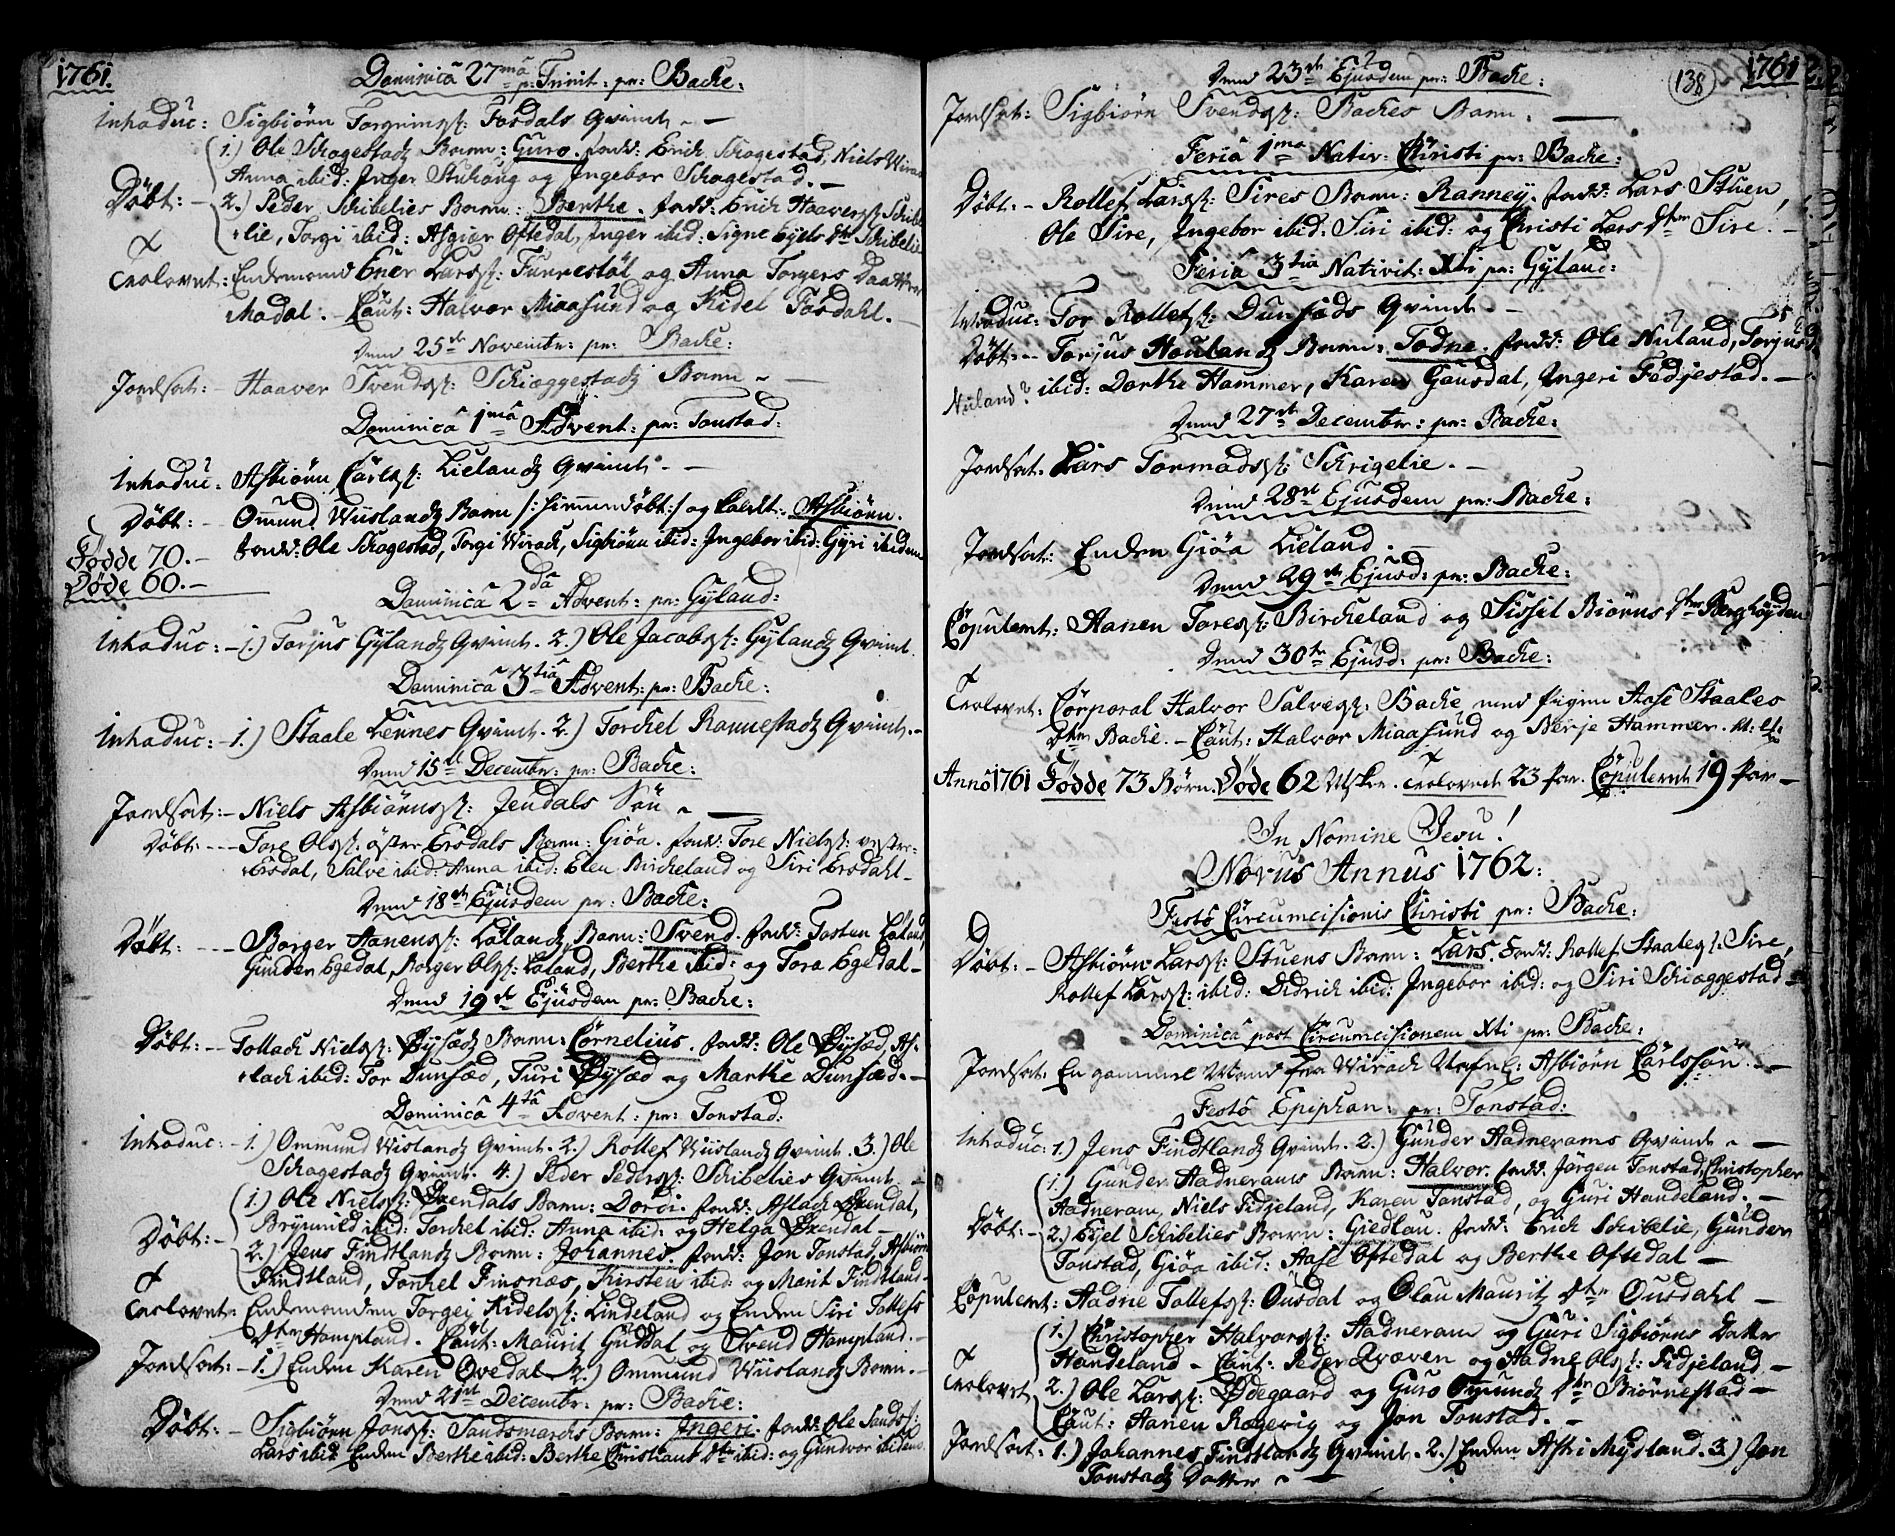 1761.
Dominicâ 27mâ p: Trinit: pr: Backe:
Introduc: Sigbiörn Torgrims: Fosdals Qvinde
1.) Ole Skagestads Barn: Guro. fadd: Erich Skagestad, Niels Wirach
Anna ibid: Inger Stuhaug og Ingebor Skagestad. -
Döbt: - 2.) Peder Schibelies Barn: Berthe. fadd: Erich Haavers: Schibe
lie, Torgi ibid: Asgier Oftedal, Inger ibid: Signe Eyels Dtr Schibelie
Trolovet: Endemand Ener Lars: Tunnestöl og Anna Torgers Daatter
Madal. Caut: Halvor Miaasund og Kidel Fosdahl.
Dend 25de November: pr: Backe:
Jordsat: - Haaver Svends: Schieggestads Barn -
Dominicâ 1mâ Advent: pr: Tonstad:
Introduc: Asbiörn Carls: Lielands Qvinde. -
Döbt: - Omund Wiislands Barn /: hiemmedöbt :/ og kaldt: Asbiörn.
fadd: Ole Skagestad, Torgi Wirach, Sigbiörn ibid: Ingebor ibid: Gyri ibidem
Födde 70. -
Döde 60. -
Dominicâ 2dâ Advent: pr: Gyland:
Introduc: - 1.) Torjus Gylands Qvinde. 2.) Ole Jacobs: Gylands Qvinde.
Dominicâ 3tiâ Advent: pr: Backe:
Introduc: - 1.) Staale Lennes Qvinde. 2.) Torckel Rannestads Qvinde. -
Dend 15de December: pr: Backe:
Jordsat: - Niels Asbiörns: Jendals Sön -
Döbt: - Tore Ols: öster Ersdals Barn: Giöa. fadd: Tore Niels: vester-
Ersdal, Salve ibid: Anna ibid: Elen Birckeland og Siri Ersdahl -
Dend 18de Ejusdem pr: Backe:
Döbt: - Borger Aanens: Lölands Barn: Svend. fadd: Tosten Löland,
Gunder Egedal, Borger Ols: Löland, Berthe ibid: og Tora Egedal -
Dend 19de Ejusdem pr: Backe:
Döbt: - Tollach Niels: Öysæds Barn: Cornelius. fadd: Ole Öysæd, As-
lach ibid: Tor Dunsæd, Turi Öysæd og Marthe Dunsæd. -
Dominicâ 4tâ Advent: pr: Tonstad:
Introduc: - 1.) Ommund Wislands Qvinde. 2.) Rollef Wiislands Qvinde. 3.) Ole
Skagestads Qvinde. 4.) Peder Peders: Schibelies Qvinde. -
1.) Ole Niels: Övendals Barn: Dordi. fadd: Aslach Övendal,
Brynnild ibid: Torckel ibid: Anna ibid: og Helga Övendal -
Döbt: - 2.) Jens Findtlands Barn: Johannes. fadd: Jon Tonstad, Asbiörn
Findtland, Torckel Finsnæs, Kirsten ibid: og Marit Findtland -
Trolovet: Endemanden Torgei Kidels: Lindeland og Enden Siri Tollefs
Dtr Hampland. Caut: Maurit Guddal og Svend Hampland. -
Jordsat: - 1.) Enden Karen Ovedal 2.) Ommund Wiislands Barn. -
Dend 21de December: pr: Backe:
Döbt: - Sigbiörn Jons: Sandsmarks Barn: Ingeri. fadd: Ole Sands:
Lars ibid: Enden Berthe ibid: Berthe Christians Dtr ibid: og Gundvor ibidem
138
1761
Dend 23de Ejusdem pr: Backe:
Jordsat: Sigbiörn Svends: Backes Barn. -
Feriâ 1mâ Nativ: Christi pr: Backe:
Döbt: - Rollef Lars: Sires Barn: Ranney. fadd: Lars Stuen,
Ole Sire, Ingebor ibid: Siri ibid: og Christi Lars Dtr Sire. -
Feriâ 3tiâ Nativit: Xti pr: Gyland:
Introduc: Tor Rollefs: Dunsæds Qvinde. -
Döbt: - Torjus Houlands Barn: Todne. fadd: Ole Nuland, Torjus
Nuland? ibid: Dorthe Hammer, Karen Gausdal, Ingeri Fedjestad. -
Dend 27de December: pr: Backe:
Jordsat: Lars Tormods: Skrigelie. -
Dend 28de Ejusdem pr: Backe:
Jordsat: Enden Giöa Lieland. -
Dend 29de Ejusd: pr: Backe:
Copuleret: Aanen Tores: Birckeland og Sissil Biörns Dtr Berghöyden
Dend 30te Ejusd: pr: Backe:
Trolovet: Corporal Halvor Salves: Backe med Pigen Aase Staales
Dtr Backe. - Caut: Halvor Miaasund og Berje Hammer.
Anno 1761 Födde 73 Börn. Döde 62 Msker. Trolovede 23 Par. Copulerede 19 Par -
In Nomine Jesu!
Novus Annus 1762:
Festô Circumcisionis Christi pr: Backe:
Döbt: - Asbiörn Lars: Stuens Barn: Lars. fadd: Rollef Staales: Sire,
Rollef Lars: ibid: Didrich ibid: Ingebor ibid: og Siri Schieggestad -
Dominicâ post Circumcisionem Xti pr: Backe:
Jordsat: En gammel Mand fra Wirach Nafnl: Asbiörn Carlssön. -
Festô Epiphan: pr: Tonstad:
Introduc: 1.) Jens Findtlands Qvinde. 2.) Gunder Aadnerams Qvinde -
1.) Gunder Aadnerams Barn: Halvor. fadd: Jörgen Tonstad, Christopher
Aadneram, Niels Fidjeland, Karen Tonstad, og Guri Haudeland. -
Döbt: - 2.) Eyel Schibelies Barn: Giedlau. fadd: Erich Schibelie, Gunder
Tonstad, Giöa ibid: Aase Oftedal og Berthe Oftedal -
Copuleret: Aadne Tollefs: Ousdal og Olau Mauritz Dtr Ousdahl -
1.) Christopher Halvors: Aadneram og Guri Sigbiörns Datter
Haudeland - Caut: Peder Qvæven og Aadne Ols: Fidjeland -
Trolovet 2.) Ole Lars: Ödegaard og Guro Omunds Dtr Biörnestad -
Caut: Aanen Rogevig og Jon Tonstad. -
Jordsat: 1.) Johannes Findtlands Qvinde. 2.) Enden Astri Mydland. 3.) Jon
Tonstads Datter -